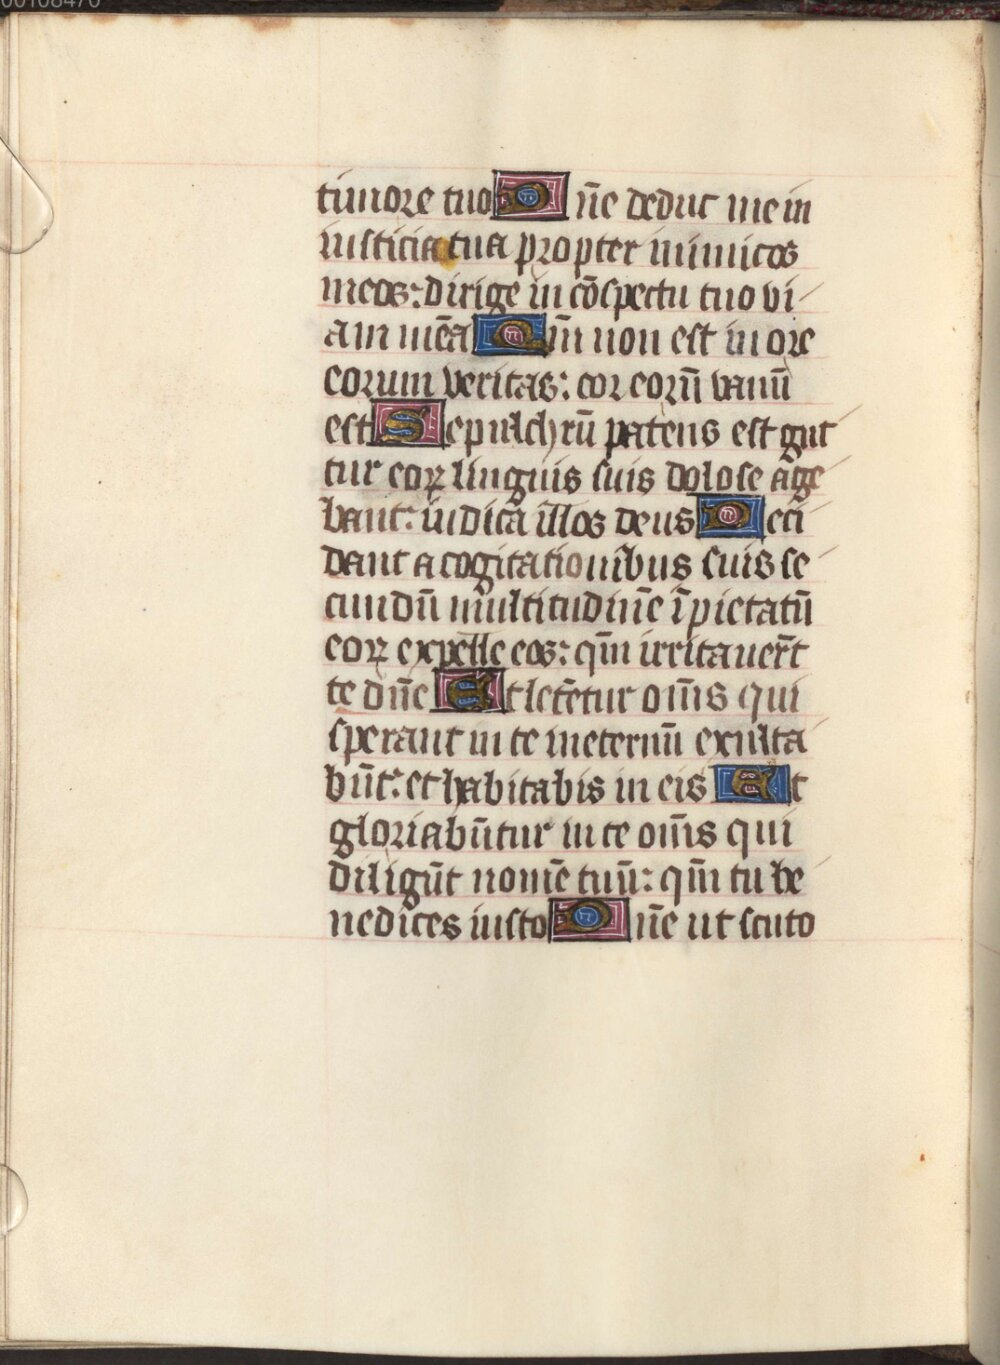 00108470
timore tuo Dn̄e deduc me in
iusticia tua propter inimicos
meos: dirige in cōspectu tuo vi
am meā Qm̄ non est in ore
eorum veritas: cor eorū vanū
est Sepulchrū patens est gut
tur eoꝝ linguis suis dolose age
bant: iudica illos deus Deci
dant a cogitationibus suis se
cundū multitudinē īpietatū
eoꝝ expelle eos: qm̄ irritauer̄t
te dn̄e Et letētur om̄s qui
sperant in te ineternū exulta
būt: et habitabis in eis Et
gloriabūtur in te om̄s qui
diligūt nomē tuū: qm̄ tu be
nedices iusto Dn̄e ut scuto